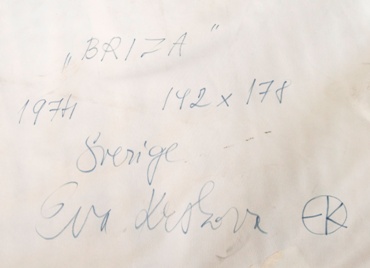 „BRIZA"
1974 142 x 178
Sverige
Eva EK